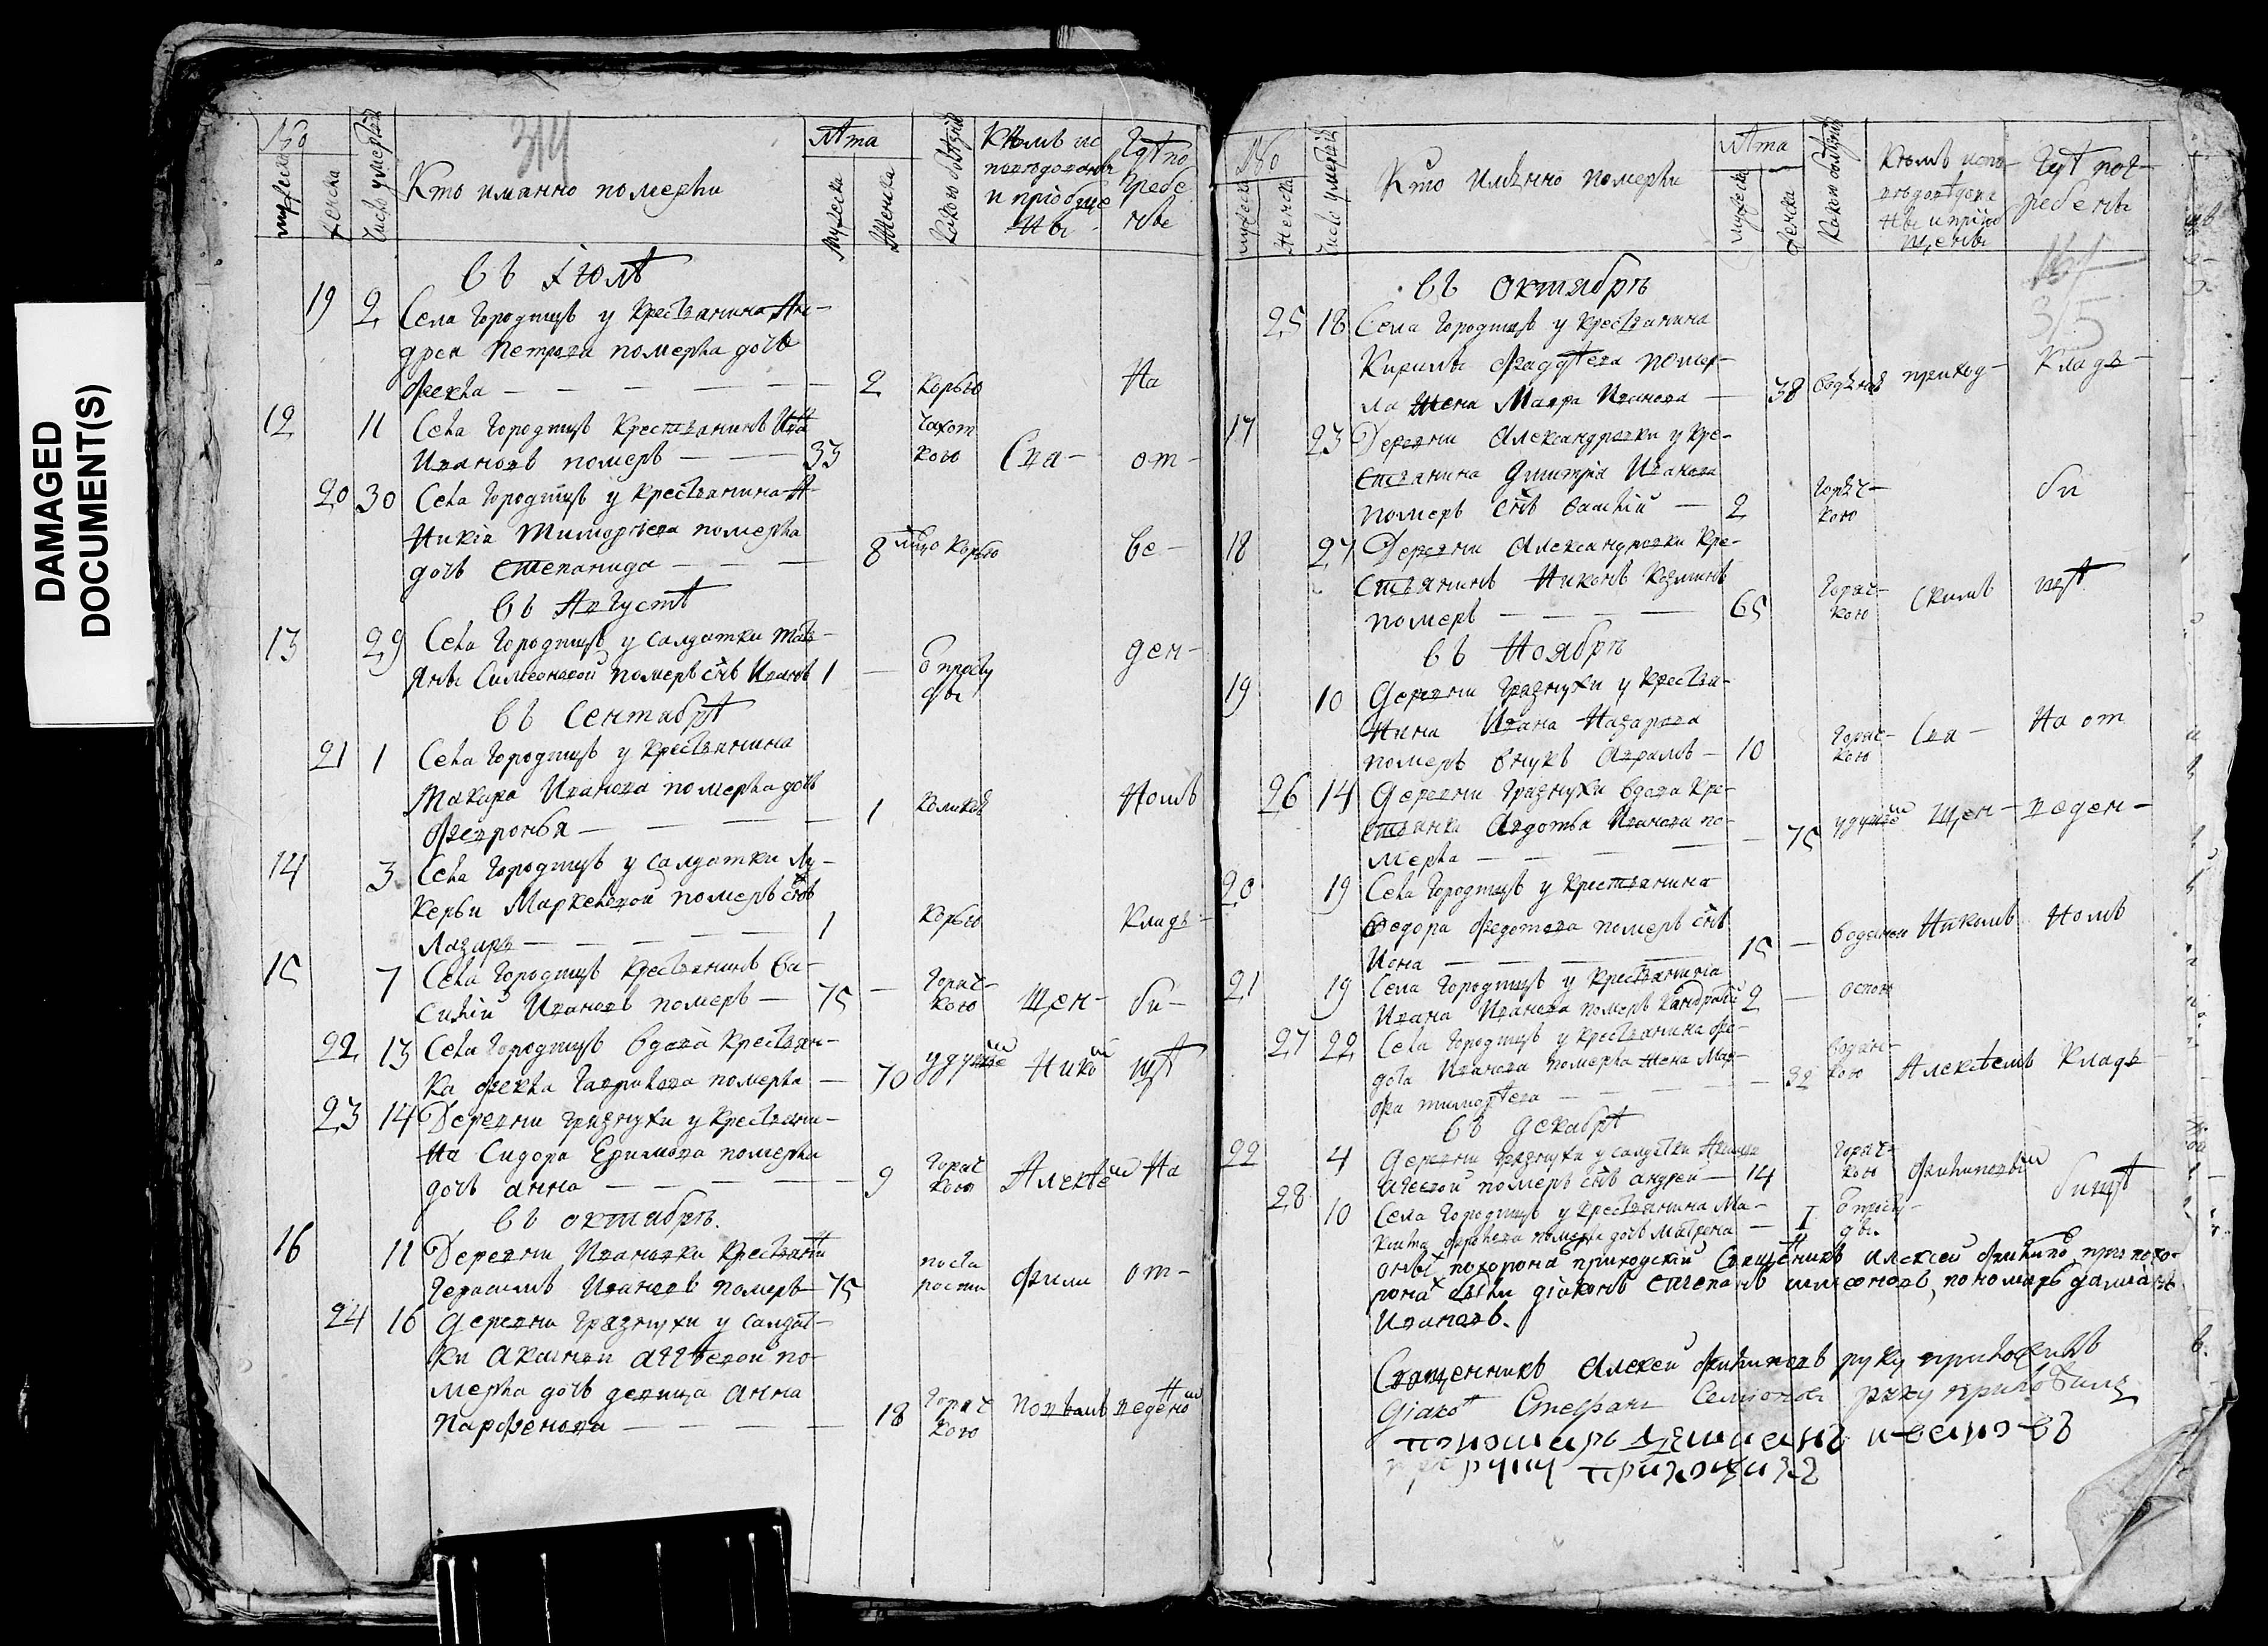 DAMAGED
DOCUMENT(S)
314
№
мужеска
женска
Число умерш
Кто имѧнно померли
лѣта
мужеска
женска
Какою болѣзнію
Кѣмъ ис
и приобще
ны
Гдѣ по
гребе
ны
въ Іюлѣ
19 2 Села Городищъ у крестьянина Ан-
дрея Петрова померла дочь
Фекла — 2 корью На
12 11 Села Городищъ крестьянинъ Ива
Ивановъ померъ — 33 чахот
кою Свя- от-
20 30 Села Городищъ у крестьянина А-
никія Тимофѣева померла
дочь Степанида — 8 корью ве-
въ Августѣ
13 29 Села Городищъ у салдатки Тать-
яны Симеоновой померъ снъ Иванъ 1 — ѿ просту
ды ден-
въ Сентябрѣ
21 1 Села Городищъ у крестьянина
Макара Иванова померла дочь
Февронья — 1 коликой номъ
14 3 Села Городищъ у салдатки Лу-
керьи Маркеловой померъ снъ
Лазарь — 1 корью кладъ-
15 7 Села Городищъ крестьянинъ Ва-
силій Ивановъ померъ — 75 — горяч-
кою щен- би-
22 13 Села Городищъ вдова крестьян-
ка Фекла Гаврилова померла — 70 удушье Нико щѣ
23 14 Деревни Грязнухи у крестьяни-
на Сидора Ефимова померла
дочь Анна — 9 горяч
кою Алексѣй На
въ октябрѣ.
16 11 Деревни Ивановки крестьянинъ
Герасимъ Ивановъ померъ — 75 по ста
рости Фили от-
24 16 Деревни Грязнухи у салдат-
ки Аксиньи Агѣевой по-
мерла дочь девица Анна
Парфенова — 18 горяч
кою поповымъ веденой
№
мужеска
женска
Число умерших
Кто имѧнно померли
лѣта
мужеска
женска
Какою болѣзнію
Кѣмъ испо-
ны и приоб
щены
Гдѣ пог-
ребены
315
въ октябрѣ
25 18 Села Городищъ у крестьянина
Кирилы Фаддѣева помер-
ла жена Мавра Иванова — 38 водяной приход- кладъ-
17 23 Деревни Александровки у кре-
стьянина Дмитрія Иванова
померъ снъ Василій — 2 горяч-
кою би
18 27 Деревни Александровки кре-
стьянинъ Никонъ Козминъ
померъ — 65 горяч-
кою скимъ щѣ
въ Ноябрѣ
19 10 Деревни Грязнухи у крестья-
нина Ивана Назарова
померъ внукъ Аврамъ — 10 горяч-
кою Свя- На от
26 14 Деревни Грязнухи вдова кре-
стьянка Авдотья Иванова по-
мерла — 75 удушьей щен- веден-
20 19 Села Городищъ у крестьянина
Федора Федотова померъ снъ
Иона — 15 — водяной Никомъ номъ
21 19 Села Городищъ у крестьянина
Ивана Иванова померъ Кандратій 2 — оспою
27 22 Села Городищъ у крестьянина Фе-
дота Иванова померла жена Мар-
фа Тимофѣева — 32 водян-
кою Алексѣемъ кладъ
въ Декабрѣ
22 4 Деревни Грязнухи у салдатки Аксиньи
Агѣевой померъ снъ Андрей — 14 горяч-
кою Филиповый
28 10 Села Городищъ у крестьянина Ма-
померла дочь Матрена — 1 ѿ просту-
ды. бищѣ
оныхъ похоронялъ приходскій Священникъ Алексѣй Филипо, при похо-
ронах были діаконъ Степанъ Симеоновъ, пономарь Даміанъ
Ивановъ.
Священникъ Алексѣй Филиповъ руку приложилъ
Діаконъ Стефанъ Семионовъ руку приложилъ
пономарь Демианъ Ивановъ
руку приложилъ